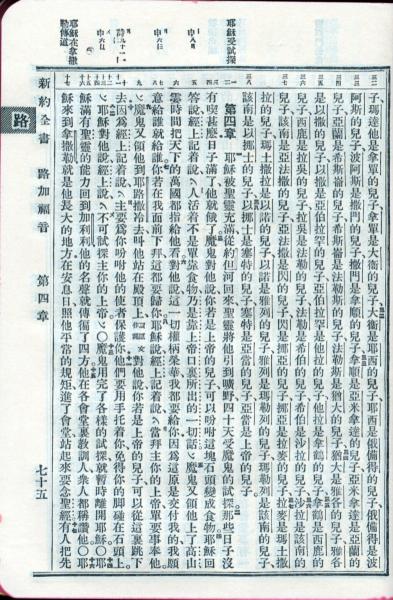 子瑪達他是拿單的兒子拿單是大衛的兒子大衛是耶西的兒子耶西是俄備得的兒子俄備得是波
阿斯的兒子波阿斯是撒門的兒子撒門是拿順的兒子拿順是亞米拿達的兒子亞米拿達是亞蘭的
兒子亞蘭是希斯崙的兒子希斯崙是法勒斯的兒子法勒斯是猶大的兒子猶大是雅各的兒子雅各
是以撒的兒子以撒是亞伯拉罕的兒子亞伯拉罕是他拉的兒子他拉是拿鶴的兒子拿鶴是西鹿的
兒子西鹿是拉吳的兒子拉吳是法勒的兒子法勒是希伯的兒子希伯是沙拉的兒子沙拉是該南的
兒子該南是亞法撒的兒子亞法撒是閃的兒子閃是挪亞的兒子挪亞是拉麥的兒子拉麥是瑪土撒
拉的兒子瑪土撒拉是以諾的兒子以諾是雅列的兒子雅列是瑪勒列的兒子瑪勒列是該南的兒子
該南是以挪士的兒子以挪士是塞特的兒子塞特是亞當的兒子亞當是上帝的兒子
耶穌受試探
第四章 耶穌被聖靈充滿從約但河回來聖靈將他引到曠野四十天受魔鬼的試探那些日子沒
有喫甚麼日子滿了他就餓了魔鬼對他說你若是上帝的兒子可以吩咐這塊石頭變成食物耶穌回
答說經上記着說人活着不是單靠食物乃是靠上帝口裏所出的一切話魔鬼又領他上了高山
霎時間把天下的萬國都指給他看對他說這一切權柄榮華我都要給你因爲這原是交付我的我願
意給誰就給誰你若在我面前下拜這都要歸你耶穌說經上記着說當拜主你的上帝單要事奉他
魔鬼又領他到耶路撒冷去叫他站在殿頂上對他說你若是上帝的兒子可以從這裏跳下
去因爲經上記着說主要爲你吩咐他的使者保護你他們要用手托着你免得你的脚碰在石頭上
耶穌對他說經上說不可試探主你的上帝○魔鬼用完了各樣的試探就暫時離開耶穌○耶
穌滿有聖靈的能力回到加利利他的名聲就傳徧了四方他在各會堂裏教訓人衆人都稱讚他○耶
穌來到拿撒勒就是他長大的地方在安息日照他平常的規矩進了會堂站起來要念聖經有人把先
耶穌在拿撒勒傳道
新約全書 路加福音 第四章 七十五
路